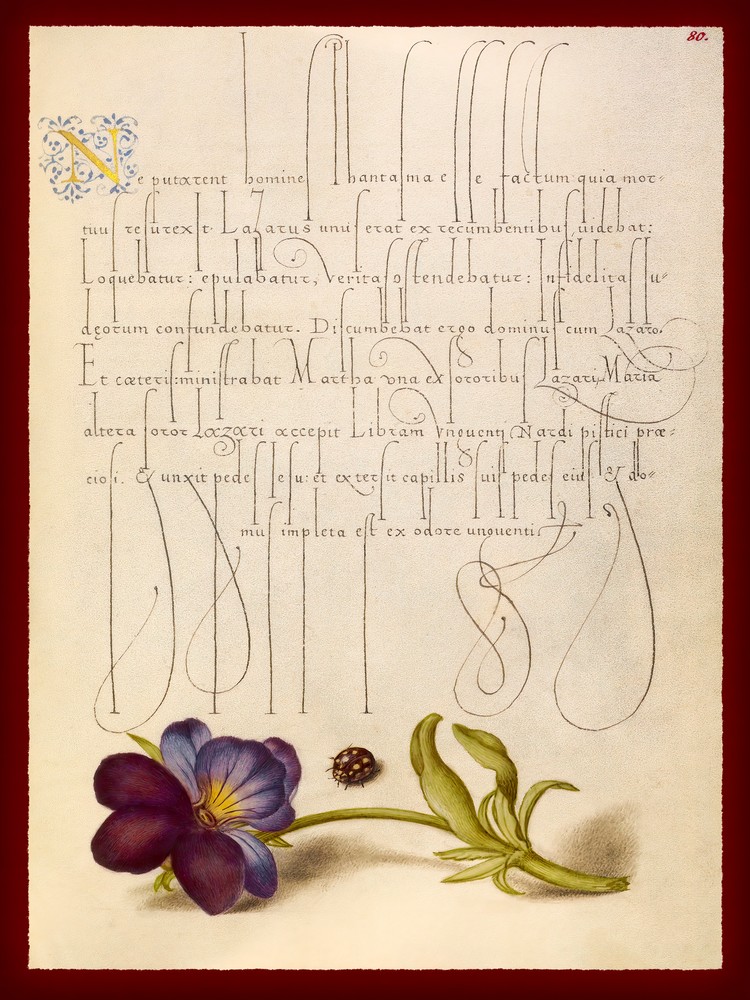 80.
Ne putarent homines phantasma esse factum quia mor-
tuus resurexit. Lazarus unus erat ex recumbentibus, uidebat:
Loquebatur: epulabatur, Veritas ostendebatur: Infidelitas Iu-
dęorum confundebatur. Discumbebat ergo dominus cum Lazaro,
Et cæteris: ministrabat Martha vna ex sororibus Lazari, Maria
altera soror Lazari accepit Libram vnguenti Nardi pistici præ-
ciosi. & unxit pedes Iesu: et extersit capillis suis pedes eius & do-
mus impleta est ex odore unguenti